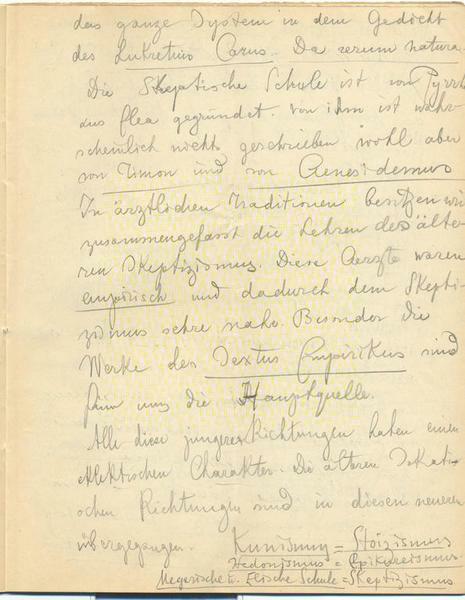 das ganze System in dem Gedicht
des Lukretius Carus. Da rerum natura.
Die Skeptische Schule ist von Pyrrh
aus Elea gegründet. Von ihm ist wahr-
scheinlich nichts geschrieben wohl aber
von Timon und von Aenesidemus
In ärztlichen Traditionen besitzen wir
zusammengefasst die Lehren des älte-
ren Skeptizismus. Diese Aerzte waren
empirisch und dadurch dem Skepti-
zismus sehre nahe. Besonder die
Werke des Sextus Empirikus sind
für uns die Hauptquelle.
Alle diese jungeren Richtungen haben einen
eklektischen Charakter. Die älteren Sokrati-
schen Richtungen sind in diesen neueren
übergegangen. Kunismus = Stoizismus
Hedonismus = Epikureismus
Megarische u. Elische Schule = Skeptizismus